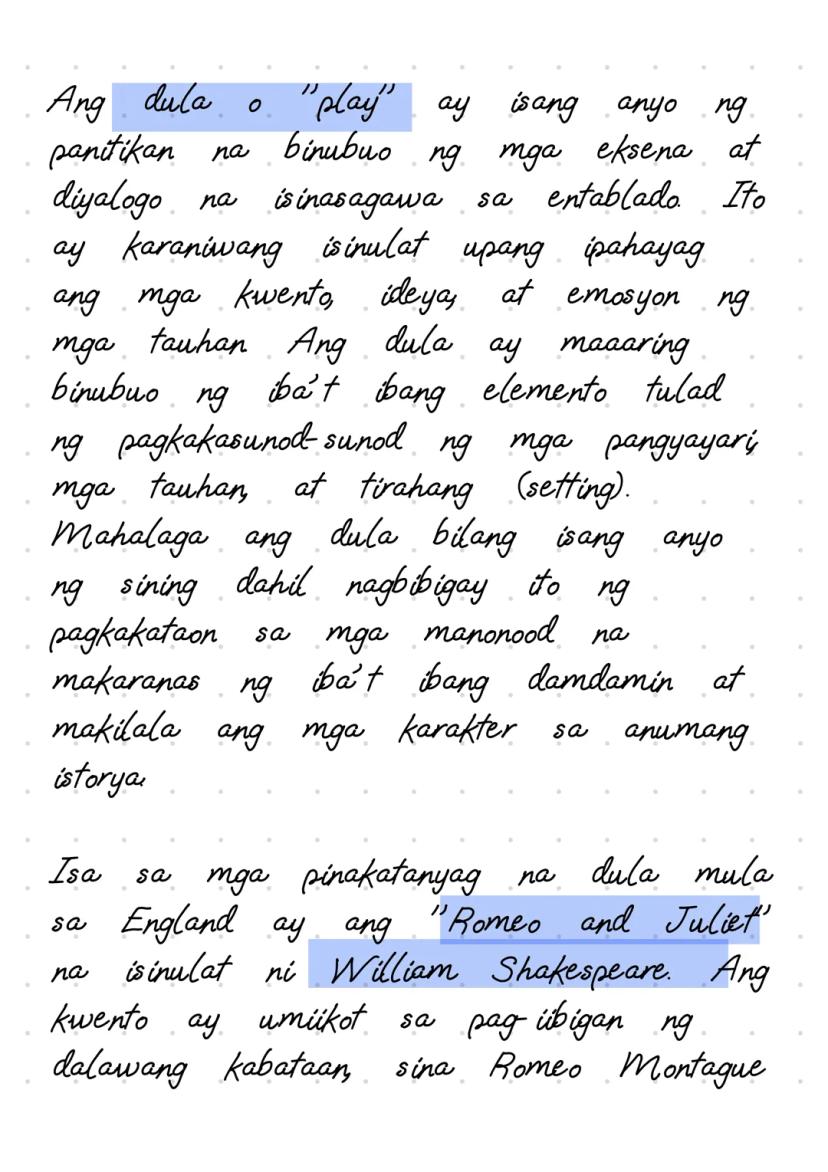 Ang dula o "play" ay isang anyo ng
panitikan na binubuo ng mga eksena at
diyalogo na isinasagawa sa entablado. Ito
ay karaniwang isinulat upang ipahayag
ang mga kwento, ideya, at emosyon ng
mga tauhan Ang dula ay maaaring
binubuo ng iba't ibang elemento tulad
ng pagkakasunod-sunod ng mga pangyayari,
mga tauhan, at tirahang (setting).
Mahalaga ang dula bilang isang anyo
ng sining dahil nagbibigay ito ng
pagkakataon sa mga manonood na
makaranas ng iba't ibang damdamin at
makilala ang mga karakter sa anumang
istorya.
Isa sa mga pinakatanyag na dula mula
sa England ay ang "Romeo and Juliet"
na isinulat ni William Shakespeare. Ang
kwento ay umiikot sa pag-iibigan ng
dalawang kabataan, sina Romeo Montague